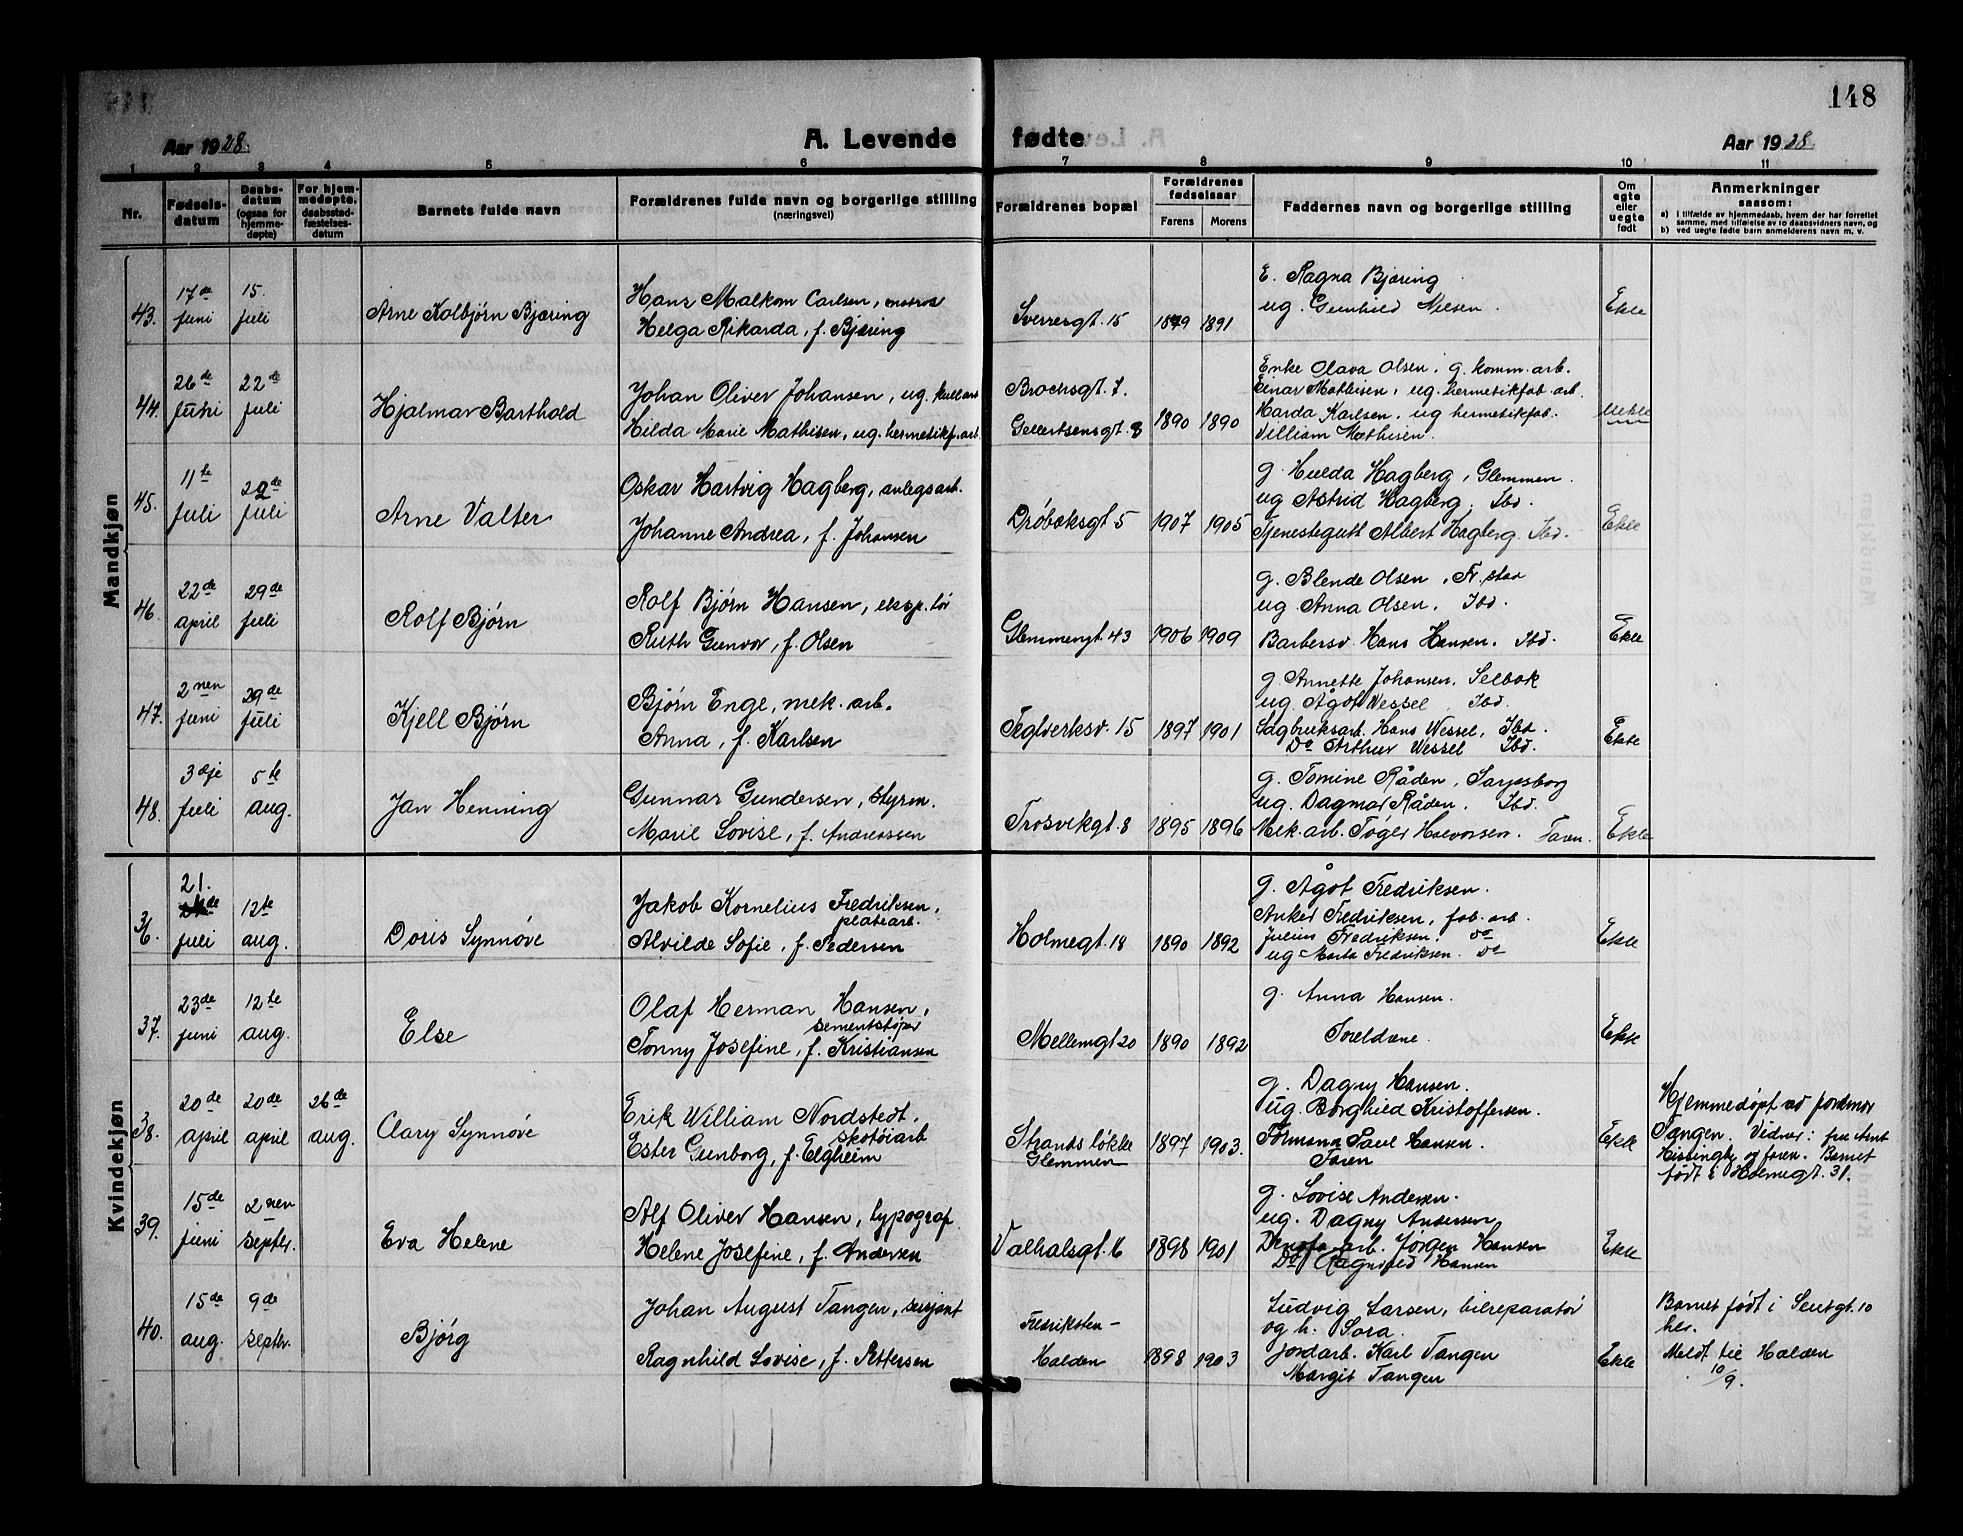 148
Aar 1928.
A. Levende fødte
Aar 1928.
1 2 3 4 5 6 7 8 9 10 11
Nr.
Fødsels-
datum
Daabs-
datum
(ogsaa for
hjemme-
døpte)
For hjem-
medøpte,
daabsstad-
fæstelses-
datum
Barnets fulde navn
Forældrenes fulde navn og borgerlige stilling
(næringsvei)
Forældrenes bopæl
Forældrenes
fødselsaar
Farens Morens
Faddernes navn og borgerlige stilling
Om
egte
eller
uegte
født
Anmerkninger
saasom:
a) i tilfælde av hjemmedaab, hvem der har forrettet
samme, med tilføielse av to daabsvidners navn, og
b) ved uegte fødte barn anmelderens navn m. v.
Mandkjøn
43.
17de
juni
15.
juli
Arne Kolbjørn Bjæring
Hans Malkom Carlsen, matros
Helga Rikarda, f. Bjæring
Sverresgt. 15
1891
E. Ragna Bjæring
ug. Gunhild Nilsen.
Ekte
44.
26de
juni
22de
juli
Hjalmar Barthold
Johan Oliver Johansen, ug. kullarb
Hilda Marie Mathisen, ug. hermetikf.arb.
Brochsgt. 7.
Gellertsensgt. 8
1890 1890
Enke Olava Olsen. g. komm. arb.
Einar Mathisen, ug. hermetikfab. arb.
Harda Karlsen. ug hermetikfab.
Villiam Mathisen.
Uekte
45.
11te
juli
22de
juli
Arne Valter
Oskar Hartvig Hagberg, anlegsarb.
Johanne Andrea, f. Johansen
Drøbaksgt 5
1907 1905
g. Hulda Hagberg, Glemmen.
ug Astrid Hagberg. Ibd.
Tjenestegutt Albert Hagberg. Ibd.
Ekte
46.
22de
april
29de
juli
Rolf Bjørn
Rolf Bjørn Hansen, eksp.tør
Ruth Gunvor, f. Olsen
Glemmengt. 43
1906 1909
g. Blende Olsen. Fr.stad
ug Anna Olsen. Ibd.
Barbersv. Hans Hansen. Ibd.
Ekte
47.
2nen
juni
29de
juli
Kjell Bjørn
Bjørn Enge, mek. arb.
Anna, f. Karlsen
Teglverksv. 15
1897 1901
g. Annette Johansen. Selbak
ug. Ågot Wessel. Ibd.
Sagbruksarb. Hans Wessel, Ibd.
Do Arthur Wessel Ibd.
Ekte
48.
3dje
juli
5te
aug.
Jan Henning
Gunnar Gundersen, styrm.
Marie Lovise, f. Andreassen
Trosvikgt. 8
1895 1896
g. Tomine Råden, Sarpsborg
ug. Dagmar Råden. Ibd.
Mek. arb. Tøger Halvorsen. Faren.
Ekte
Kvindekjøn
36.
21.
juli
12te
aug.
Doris Synnøve
Jakob Kornelius Fredriksen,
platearb.
Alvilde Sofie, f. Pedersen
Holmegt. 18
1890 1892
g. Ågot Fredriksen.
Anker Fredriksen, fab. arb.
Julius Fredriksen. do
ug Marta Fredriksen. do
Ekte
37.
23de
juni
12te
aug.
Else
Olaf Herman Hansen,
sementstøper
Tonny Josefine, f. Kristiansen
Mellemgt 20
1890 1892
g. Anna Hansen.
Foreldrene.
Ekte
38.
20de
april
20de
april
26de
aug.
Clary Synnøve
Erik William Nordstedt.
skotøiarb
Ester Gunborg, f. Elgheim
Strands løkke
Glemmen
1897 1903.
g. Dagny Hansen.
ug. Borghild Kristoffersen.
Formann Paul Hansen.
Faren
Ekte
Hjemmedøpt ved jordmor
Tangen. Vidner: fru
og faren. Barnet
født i Holmegt. 31.
39.
15de
juni
2nen
septer.
Eva Helene
Alf Oliver Hansen, typograf
Helene Josefine, f. Andersen
Valhalsgt. 16
1898 1901
g. Lovise Andersen.
ug. Dagny Andersen
arb. Jørgen Hansen
Do Ragnhild Hansen
Ekte
40.
15de
aug.
9de
septer.
Bjørg
Johan August Tangen, sersjant
Ragnhild Lovise, f. Pettersen
Fredriksten -
Halden
1898 1903
Ludvig Larsen, bilreparatør
og h. Sora.
jordarb. Karl Tangen
Margit Tangen
Ekte
Barnet født i gt. 10
her.
Meldt til Halden
10/9.